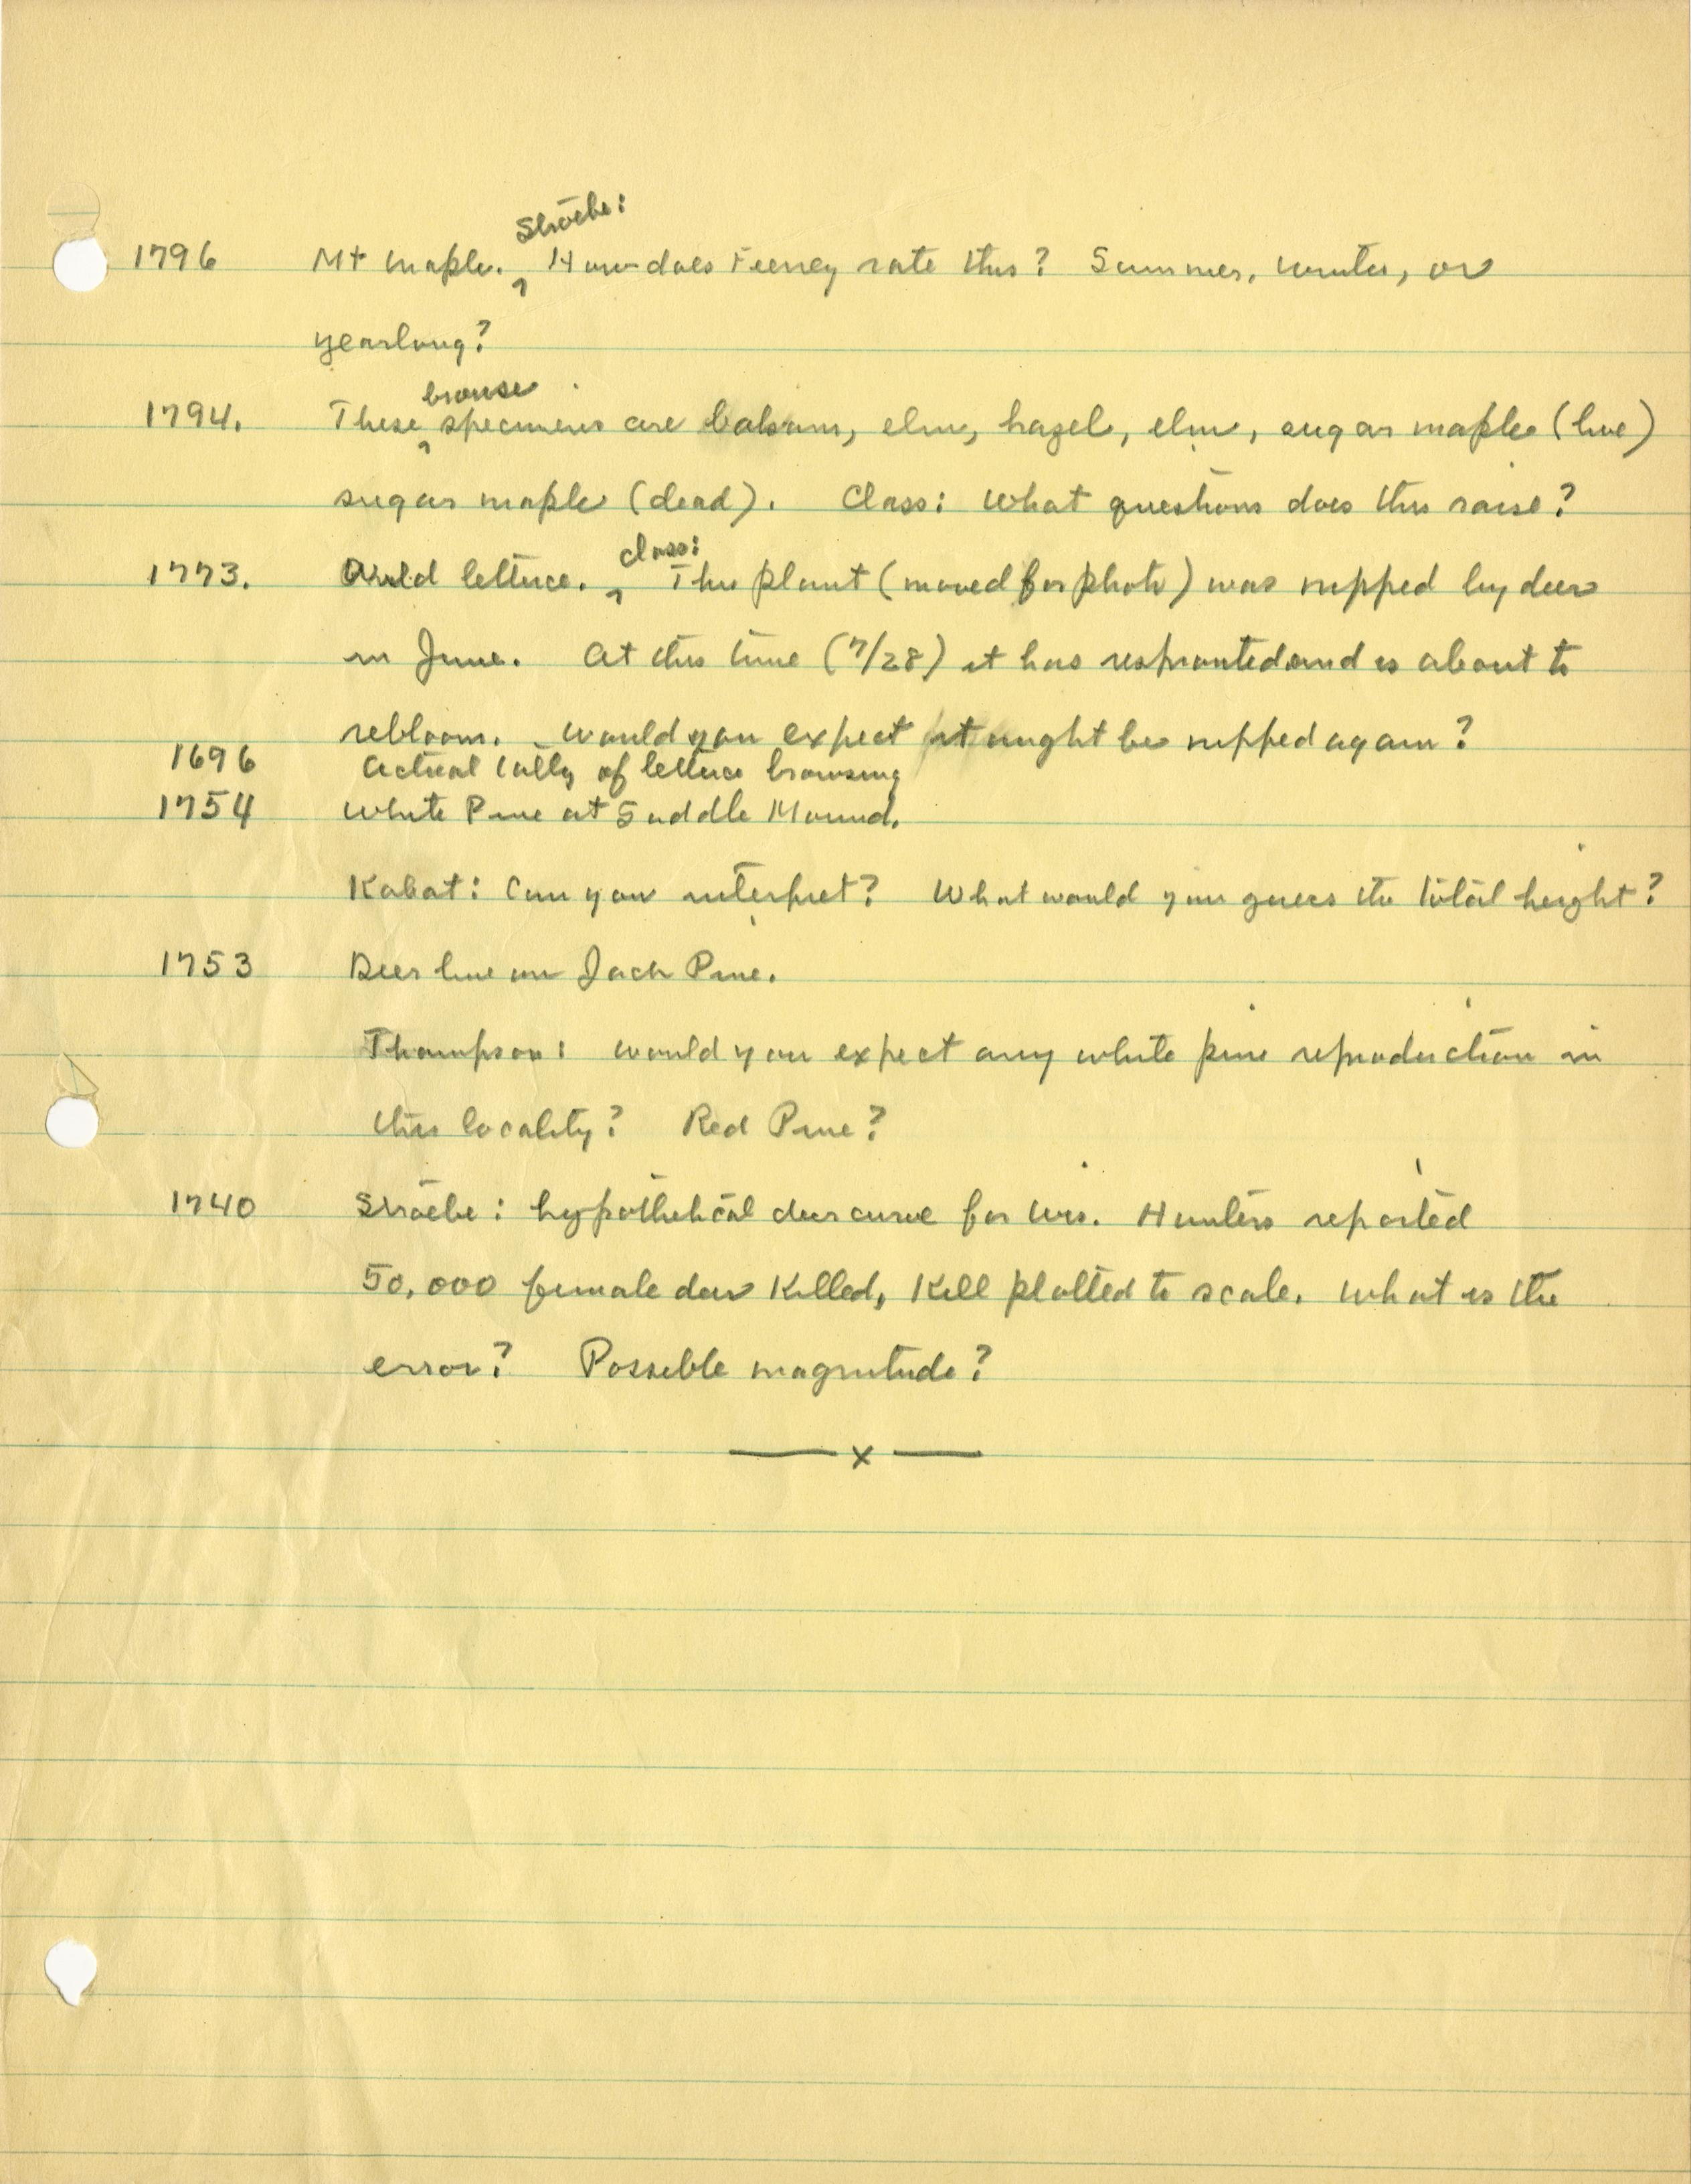 Stroebe:
1796 Mt Maple. ^ How does Feeney rate this? Summer, winter, or
yearlong?
browse
1794. These ^ specimens are balsam, elm, hazel, elm, sugar maple (live)
sugar maple (dead). Class: What questions does this raise?
class:
1773. Wild lettuce. ^ This plant (moved for photo) was nipped by deer
in June. At this time (7/28) it has resprouted and is about to
rebloom. Would you expect it might be nipped again?
1696 Actual tally of lettuce browsing
1754 White Pine at Saddle Mound.
Kabat: Can you interpret? What would you guess the total height?
1753 Deer line on Jack Pine.
Thompson: Would you expect any white pine reproduction in
this locality? Red Pine?
1740 Stroebe: hypothetical deer curve for Wis. Hunters reported
50,000 female deer killed, kill plotted to scale. What is the
error? Possible magnitude?
— x —